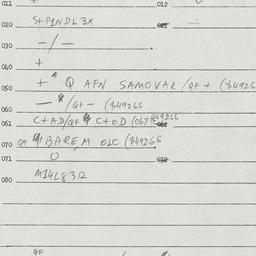 011 + 012
020 S+P1NDL3X 021
030 -/-
040 +
050 + Q AFN SAMOVAR/QF + ($4926
060 — /QF - ($49266
061 C+AD/QF C+OD (067@49266 062
070 QF BAREM OLC ($49266
071 O 072
080 M14L83R
QF